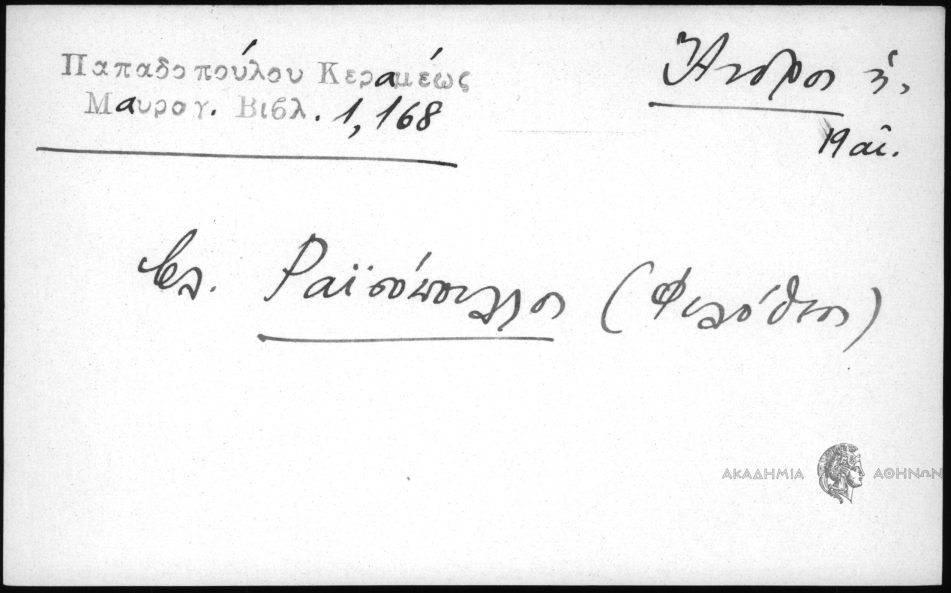 Παπαδοπούλου Κεραμέως
Μαυρογ. Βιβλ. 1, 168
Ἄνδρος ἡ,
19 αἰ.
βλ. Ραϊσόπουλος (Φιλόθεος)
ΑΚΑΔΗΜΙΑ ΑΘΗΝΩΝ